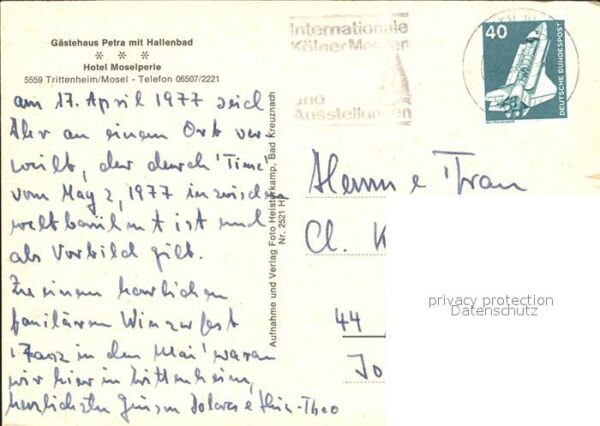 Gästehaus Petra mit Hallenbad
Hotel Moselperle
5559 Trittenheim/Mosel - Telefon 06507/2221
am 17. April 1977 seid
Ihr an einem Ort ver-
weilt, der durch 'Time'
vom May 2, 1977 inzwischen
weltberühmt ist und
als Vorbild gilt.
Zu einem herrlichen
familiären Winzerfest
'Tanz in den Mai' waren
wir hier in Trittenheim,
herzlichste Grüsse Dolores e Theo
Aufnahme und Verlag Foto Heisterkamp, Bad Kreuznach
Nr. 2521 H
Internationale
Kölner Messen
und
Ausstellungen
40
DEUTSCHE BUNDESPOST
Herrn e Frau
Cl. K
44
privacy protection
Datenschutz